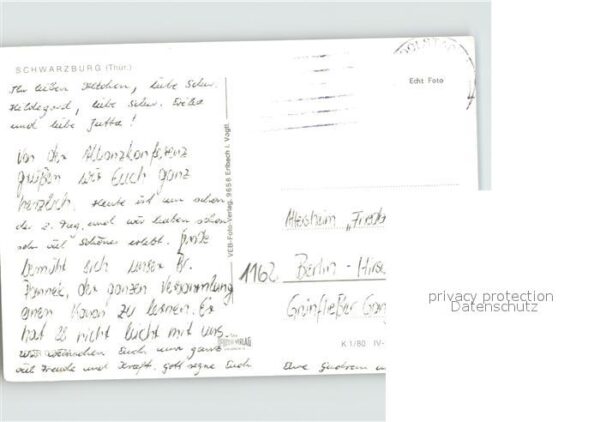 SCHWARZBURG (Thür.)
Ihr lieben Mädchen, liebe Schw.
Hildegard, liebe Schw.
und liebe Jutta!
Von der Allianzkonferenz
grüßen wir Euch ganz
herzlich. Heute ist nun schon
der 2. Tag, und wir haben schon
sehr viel Schönes erlebt.
bemüht sich unser Br.
der ganzen Versammlung
einen Kanon zu lernen. Er
hat es nicht leicht mit uns.
Wir wünschen Euch nun ganz
viel Freude und Kraft. Gott segne Euch
Eure Gudrun
VEB-Foto-Verlag, 9656 Erlbach i. Vogtl.
VERLAG
Echt Foto
Altersheim
1162 Berlin - Hirse
Grünfließer
K 1/80 IV-
privacy protection
Datenschutz